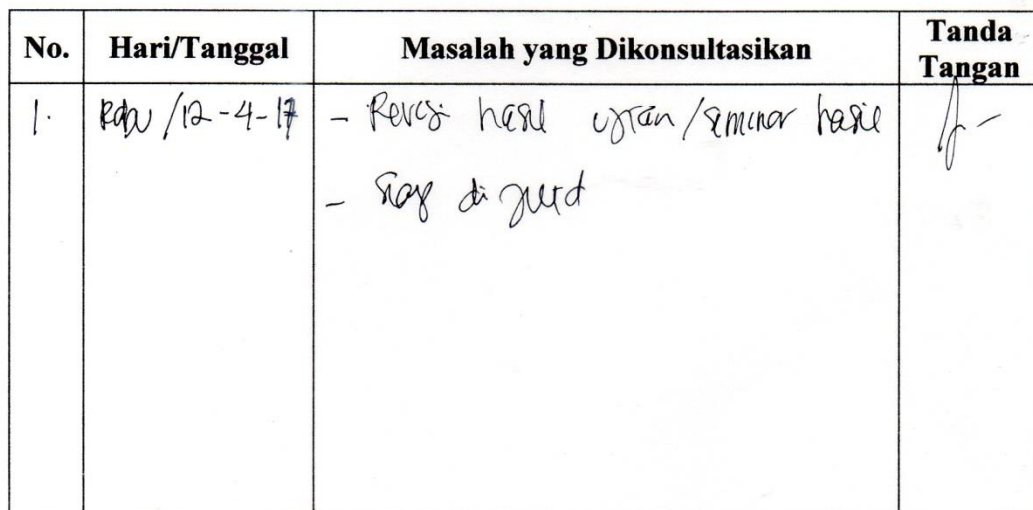 No. Hari/Tanggal Masalah yang Dikonsultasikan Tanda Tangan
1. Rabu /12-4-17 - Revisi hasil ujian/seminar hasil
- siap di jilid